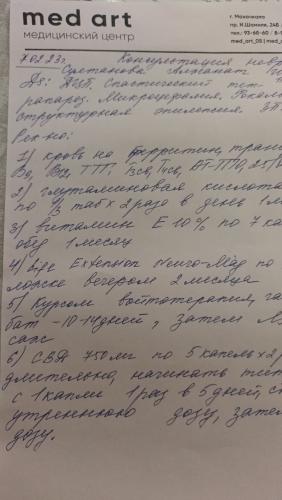 med art
медицинский центр
г. Махачкала
пр. И.Шамиля, 24Б
тел.: 93-60-60 / 8-9
med_art_05 | med_
7.02.23г. Консультация невро
Ds: ДЦП. Спастический тет-
рапарез. Микроцефалия. Фокаль
структурная эпилепсия. ЗП
Рек-но:
1) кровь на ферритин, тран
B9, B12, ТТГ, Т3св, Т4св, АТ-ТПО, 25/
2) глутаминовая кислота
по 1/3 таб х 2 раза в день 1 м
3) витамин Е 10% по 7 ка
обед 1 месяц
4) Life Extension Neuro-Mag по
ложке вечером 2 месяца
5) Курсом войтотерапия,
бат - 10-14 дней, затем
саж
6) СВД 750 мг по 5 капель х 2
длительно, начинать тит
с 1 капли 1 раз в 5 дней, с
утреннюю дозу, зате
дозу.